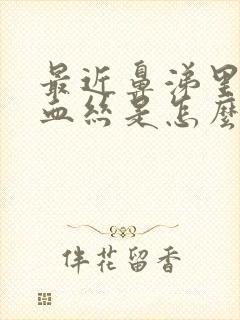 最近鼻涕里
血丝是怎麼
伴花留香